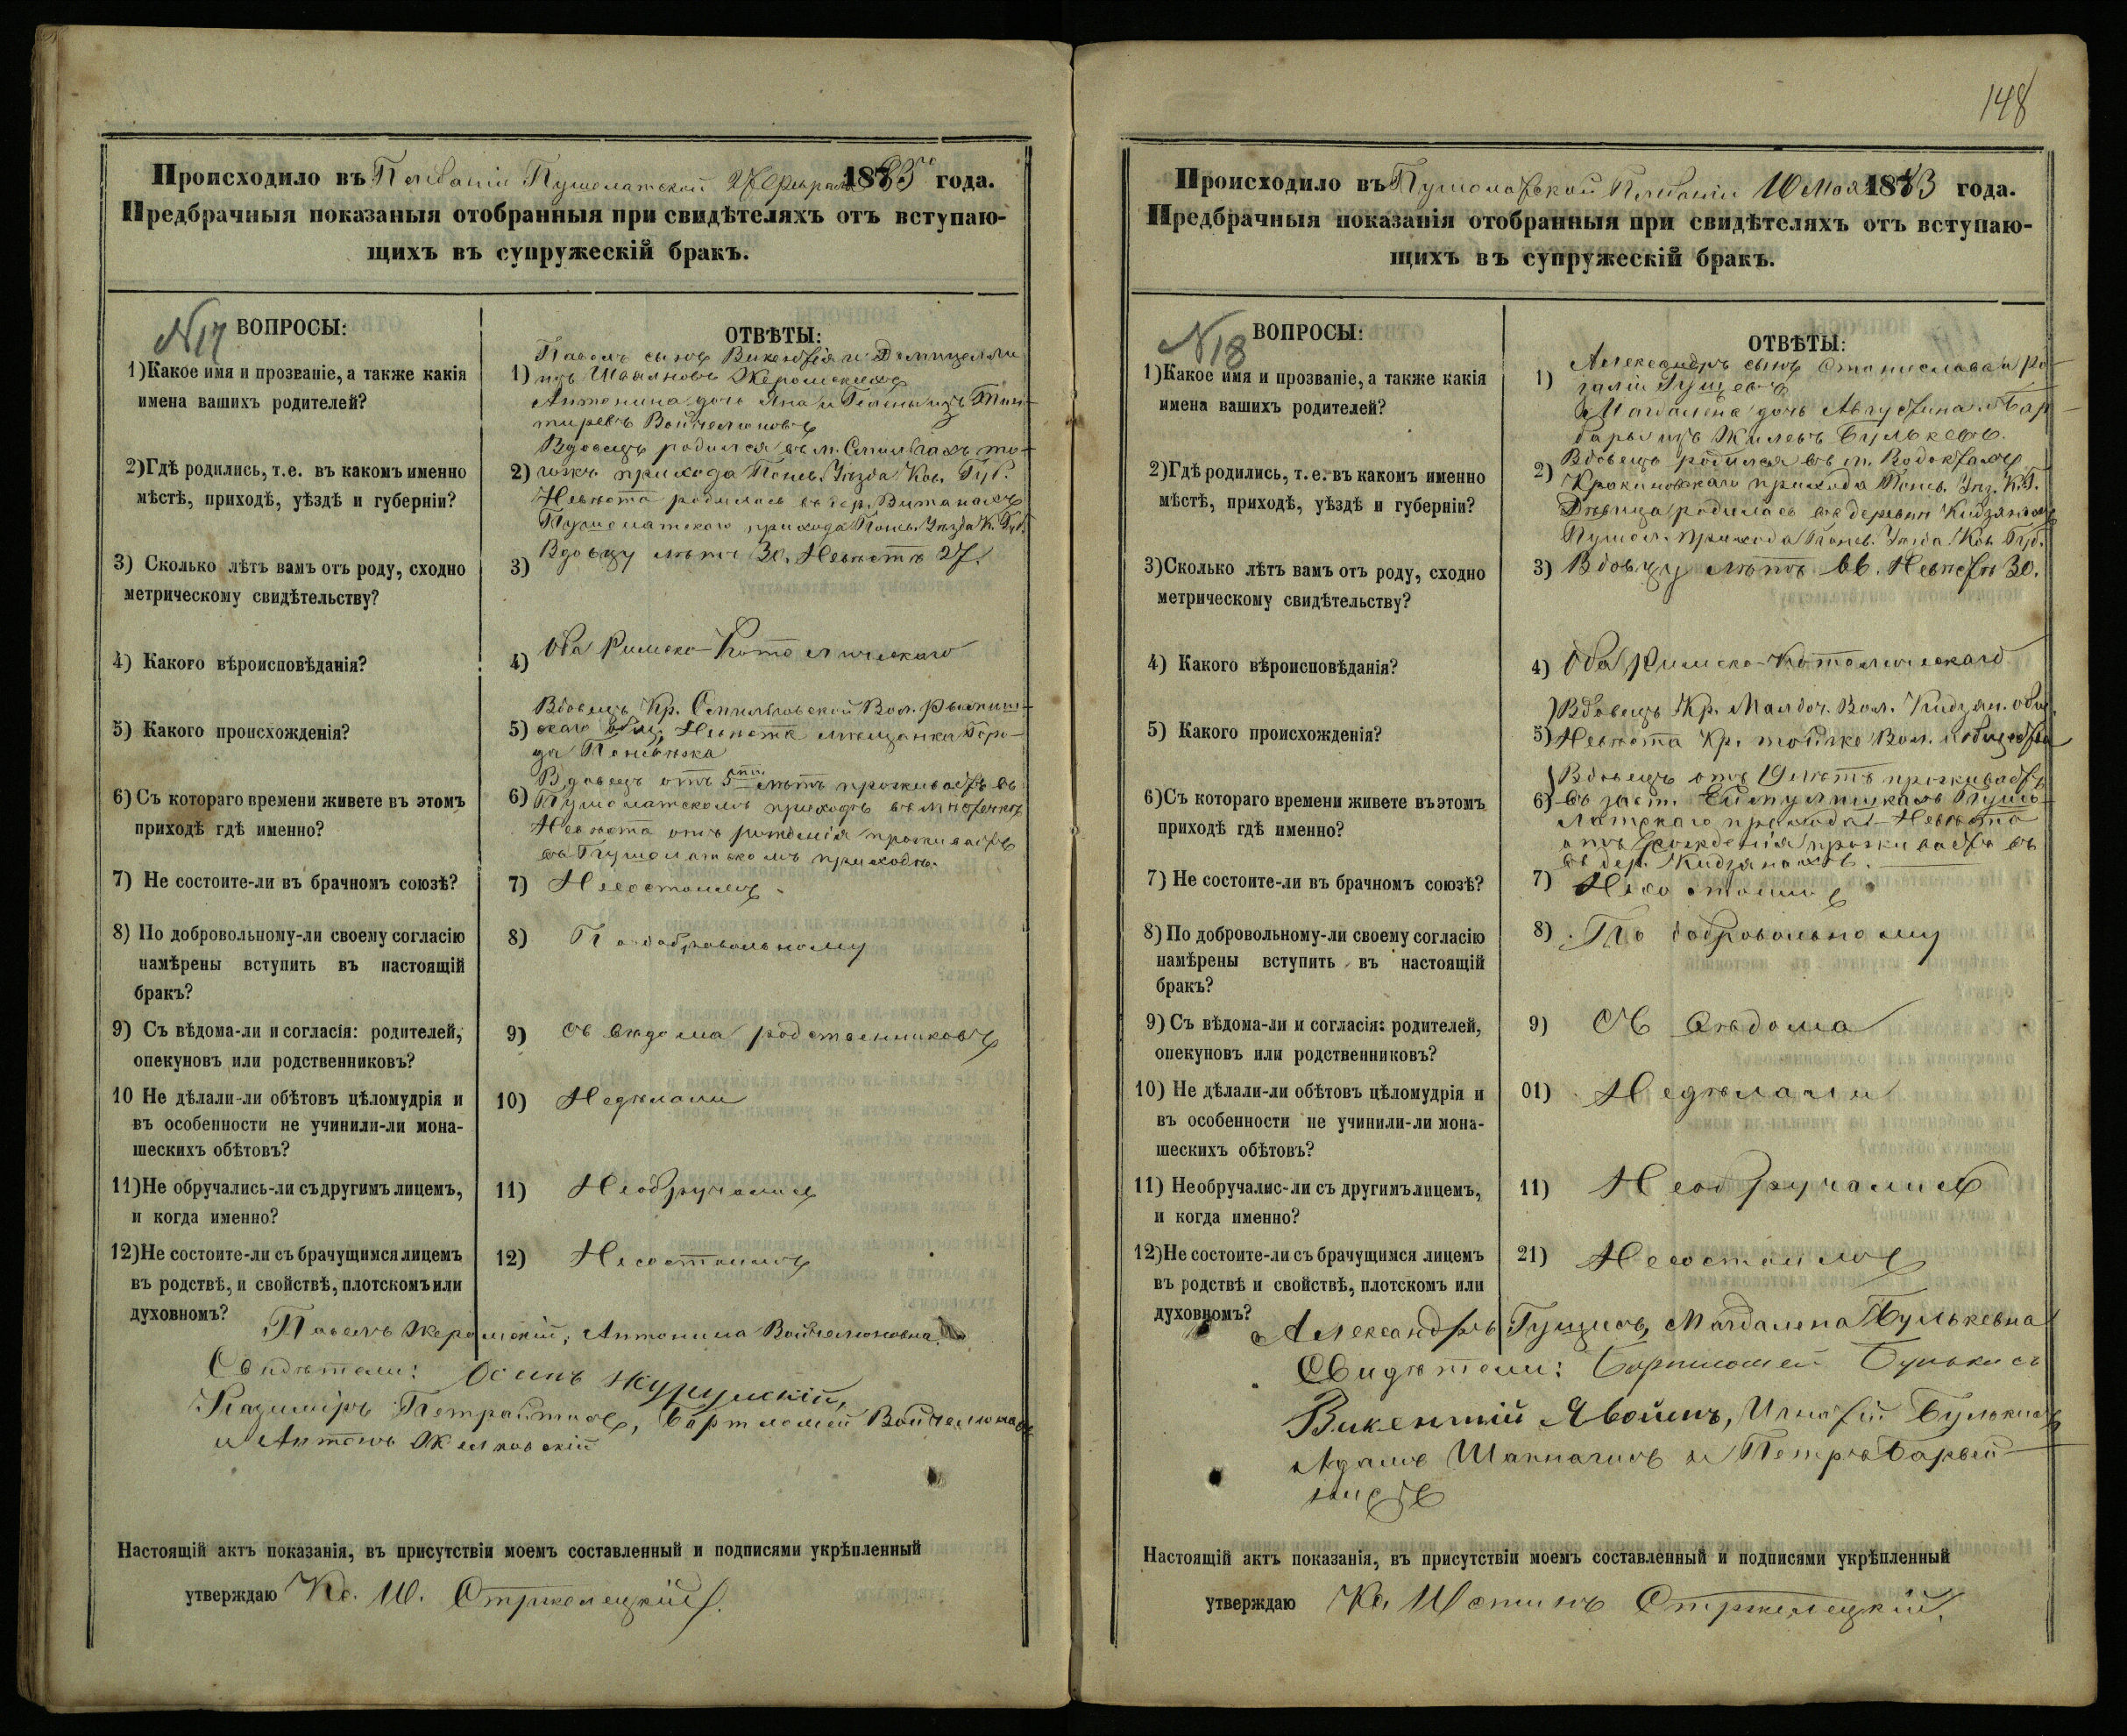 Происходило въ Плебаніи Пушолатской 27 Февраля 1883 года.
Предбрачныя показаныя отобранныя при свидѣтеляхъ отъ вступаю-
щихъ въ супружескій бракъ.
N 17
ВОПРОСЫ:
ОТВѢТЫ:
1) Какое имя и прозваніе, а также какія
имена вашихъ родителей?
1) Павелъ сынъ Викентія и
Жеромскихъ
Антонина дочь Яна и
Войчелюновъ
2) Гдѣ родились, т. е. въ какомъ именно
мѣстѣ, приходѣ, уѣздѣ и губерніи?
Вдовецъ родился въ м. Смильгахъ то-
2) гожъ прихода Понев. Уѣзда Ков. Губ.
Невѣста родилась въ дер. Витанахъ
Пушолатскаго прихода Понев. Уѣзда К. Губ.
3) Сколько лѣтъ вамъ отъ роду, сходно
метрическому свидѣтельству?
3) Вдовцу лѣтъ 30. Невѣстѣ 27.
4) Какого вѣроисповѣданія?
4) Оба Римско-Католическаго
5) Какого происхожденія?
Вдовецъ Кр. Смильговской Вол.
5) Невѣста мѣщанка Горо-
да Поневѣжа
6) Съ котораго времени живете въ этомъ
приходѣ гдѣ именно?
Вдовецъ отъ 5 лѣтъ проживаетъ въ
6) Пушолатскомъ приходѣ въ мѣстечкѣ
Невѣста отъ рожденія проживаетъ
въ Пушолатскомъ приходѣ.
7) Не состоите-ли въ брачномъ союзѣ?
7) Несостоимъ
8) По добровольному-ли своему согласію
намѣрены вступить въ настоящій
бракъ?
8) По добровольному
9) Съ вѣдома-ли и согласія: родителей,
опекуновъ или родственниковъ?
9) Съ вѣдома родственниковъ
10 Не дѣлали-ли обѣтовъ цѣломудрія и
въ особенности не учинили-ли мона-
шескихъ обѣтовъ?
10) Недѣлали
11) Не обручались-ли съ другимъ лицемъ,
и когда именно?
11) Необручались
12) Не состоите-ли съ брачущимся лицемъ
въ родствѣ, и свойствѣ, плотскомъ или
духовномъ?
12) Несостоимъ
Павелъ Жеромскій, Антонина Войчелюновна
Свидѣтели: Осипъ
Казимиръ Петрайтисъ, Бартломей Войчелюнасъ
и Антонъ
Настоящій актъ показанія, въ присутствіи моемъ составленный и подписями укрѣпленный
утверждаю Кс. Ю. Стржелецкій.
148
Происходило въ Пушолатской Плебаніи 10 Мая 1883 года.
Предбрачныя показанія отобранныя при свидѣтеляхъ отъ вступаю-
щихъ въ супружескій бракъ.
N 18
ВОПРОСЫ:
ОТВѢТЫ:
1) Какое имя и прозваніе, а также какія
имена вашихъ родителей?
Александръ сынъ Станислава и Ро-
1) заліи
и Магдалена дочь Августина и Бар-
бары изъ Булькевъ.
2) Гдѣ родились, т. е. въ какомъ именно
мѣстѣ, приходѣ, уѣздѣ и губерніи?
Вдовецъ родился въ
2) Кракиновскаго прихода Понев. Уѣз. К. Г.
Дѣвица родилась въ деревни Кидзянахъ
Пушол. прихода Понев. Уѣзда Ков. Губ.
3) Сколько лѣтъ вамъ отъ роду, сходно
метрическому свидѣтельству?
3) Вдовцу лѣтъ 66. Невѣстѣ 30.
4) Какого вѣроисповѣданія?
4) Оба Римско-Католическаго
5) Какого происхожденія?
Вдовецъ Кр. Вол. Кидзян. общ.
5) Невѣста Кр. тойжѣ Вол. и общества
6) Съ котораго времени живете въ этомъ
приходѣ гдѣ именно?
Вдовецъ отъ лѣтъ проживаетъ
6) въ Пушо-
латскаго прихода - Невѣста
отъ рожденія проживаетъ въ
въ дер. Кидзянахъ.
7) Не состоите-ли въ брачномъ союзѣ?
7) Несостоимъ
8) По добровольному-ли своему согласію
намѣрены вступить въ настоящій
бракъ?
8) По добровольному
9) Съ вѣдома-ли и согласія: родителей,
опекуновъ или родственниковъ?
9) Съ вѣдома
10) Не дѣлали-ли обѣтовъ цѣломудрія и
въ особенности не учинили-ли мона-
шескихъ обѣтовъ?
01) Недѣлали
11) Необручалис-ли съ другимъ лицемъ,
и когда именно?
11) Необручались
12) Не состоите-ли съ брачущимся лицемъ
въ родствѣ и свойствѣ, плотскомъ или
духовномъ?
21) Несостоимъ
Александръ Магдалена Булькевна
Свидѣтели: Бартломей Булькисъ
Викентій Явойшъ, Игнатій Булькисъ
Адамъ и Петръ
Настоящій актъ показанія, въ присутствіи моемъ составленный и подписями укрѣпленный
утверждаю Кс. Юстинъ Стржелецкій.